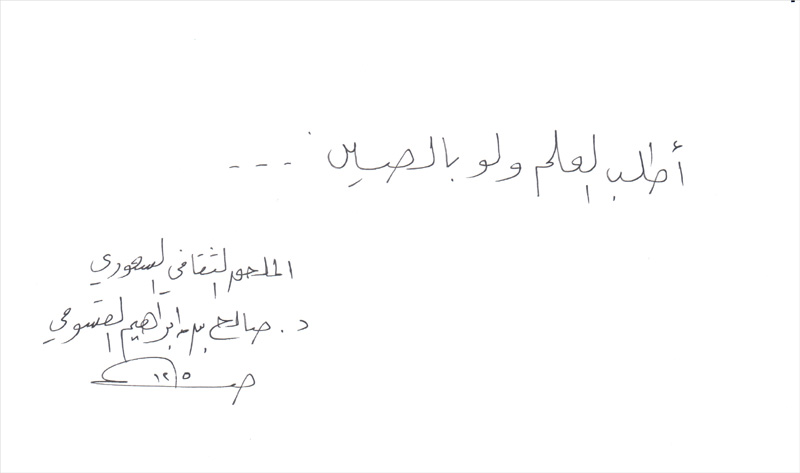 أطلب العلم ولو بالصين ...
الملحق الثقافي السعودي
د. صالح بن ابراهيم القسومي